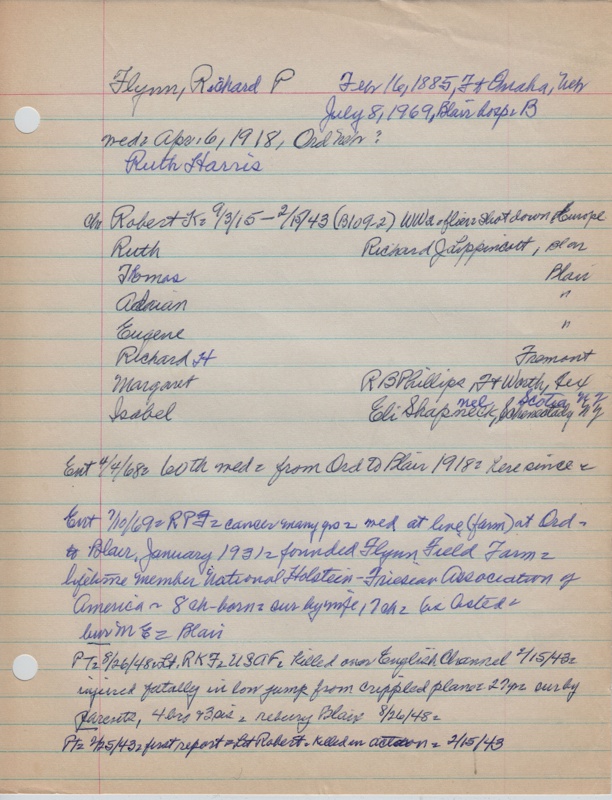 Flynn, Richard P Feb 16, 1885, Ft Omaha, Neb
July 8, 1969, Blair hosp = B
med = Apr. 6, 1918, Ord Neb ?
Ruth Harris
ch Robert K = 9/3/15 - 2/15/43 (B109-2) WW2 flier shot down Europe
Ruth Richard J Lippincott, Blair
Thomas Blair
Adrian "
Eugene "
Richard H Fremont
Margaret R B Phillips, Ft Worth, Tex
nel Scotia N Y
Isabel Eli Shapneck, Schenectady NY
Ent 4/4/68 = 60th wed = from Ord to Blair 1918 = here since =
Ent 7/10/69 = R P F = cancer many yrs = wed at line (farm) at Ord =
to Blair, January 1931 = founded Flynn Field Farm =
lifetime member National Holstein-Friesian Association of
America = 8 ch-born = sur by wife, 7 ch = as listed =
bur M E = Blair
PT = 8/26/48 = Lt. R K F = USAF, killed over English Channel 2/15/43 =
injured fatally in low jump from crippled plane = 27 yr = sur by
parents, 4 bros 3 sis = rebury Blair 8/26/48 =
PT = 2/25/43 = first report = Lt Robert = killed in action = 2/15/43